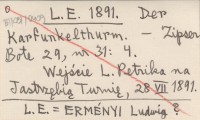 L. E. 1891. Der
Karfunkelthurm. – Zipser
Bote 29, nr. 31: 4.
Wejście L. Petrika na
Jastrzębią Turnię, 28 VII 1891.
L. E. = ERMÉNYI Ludwig ?